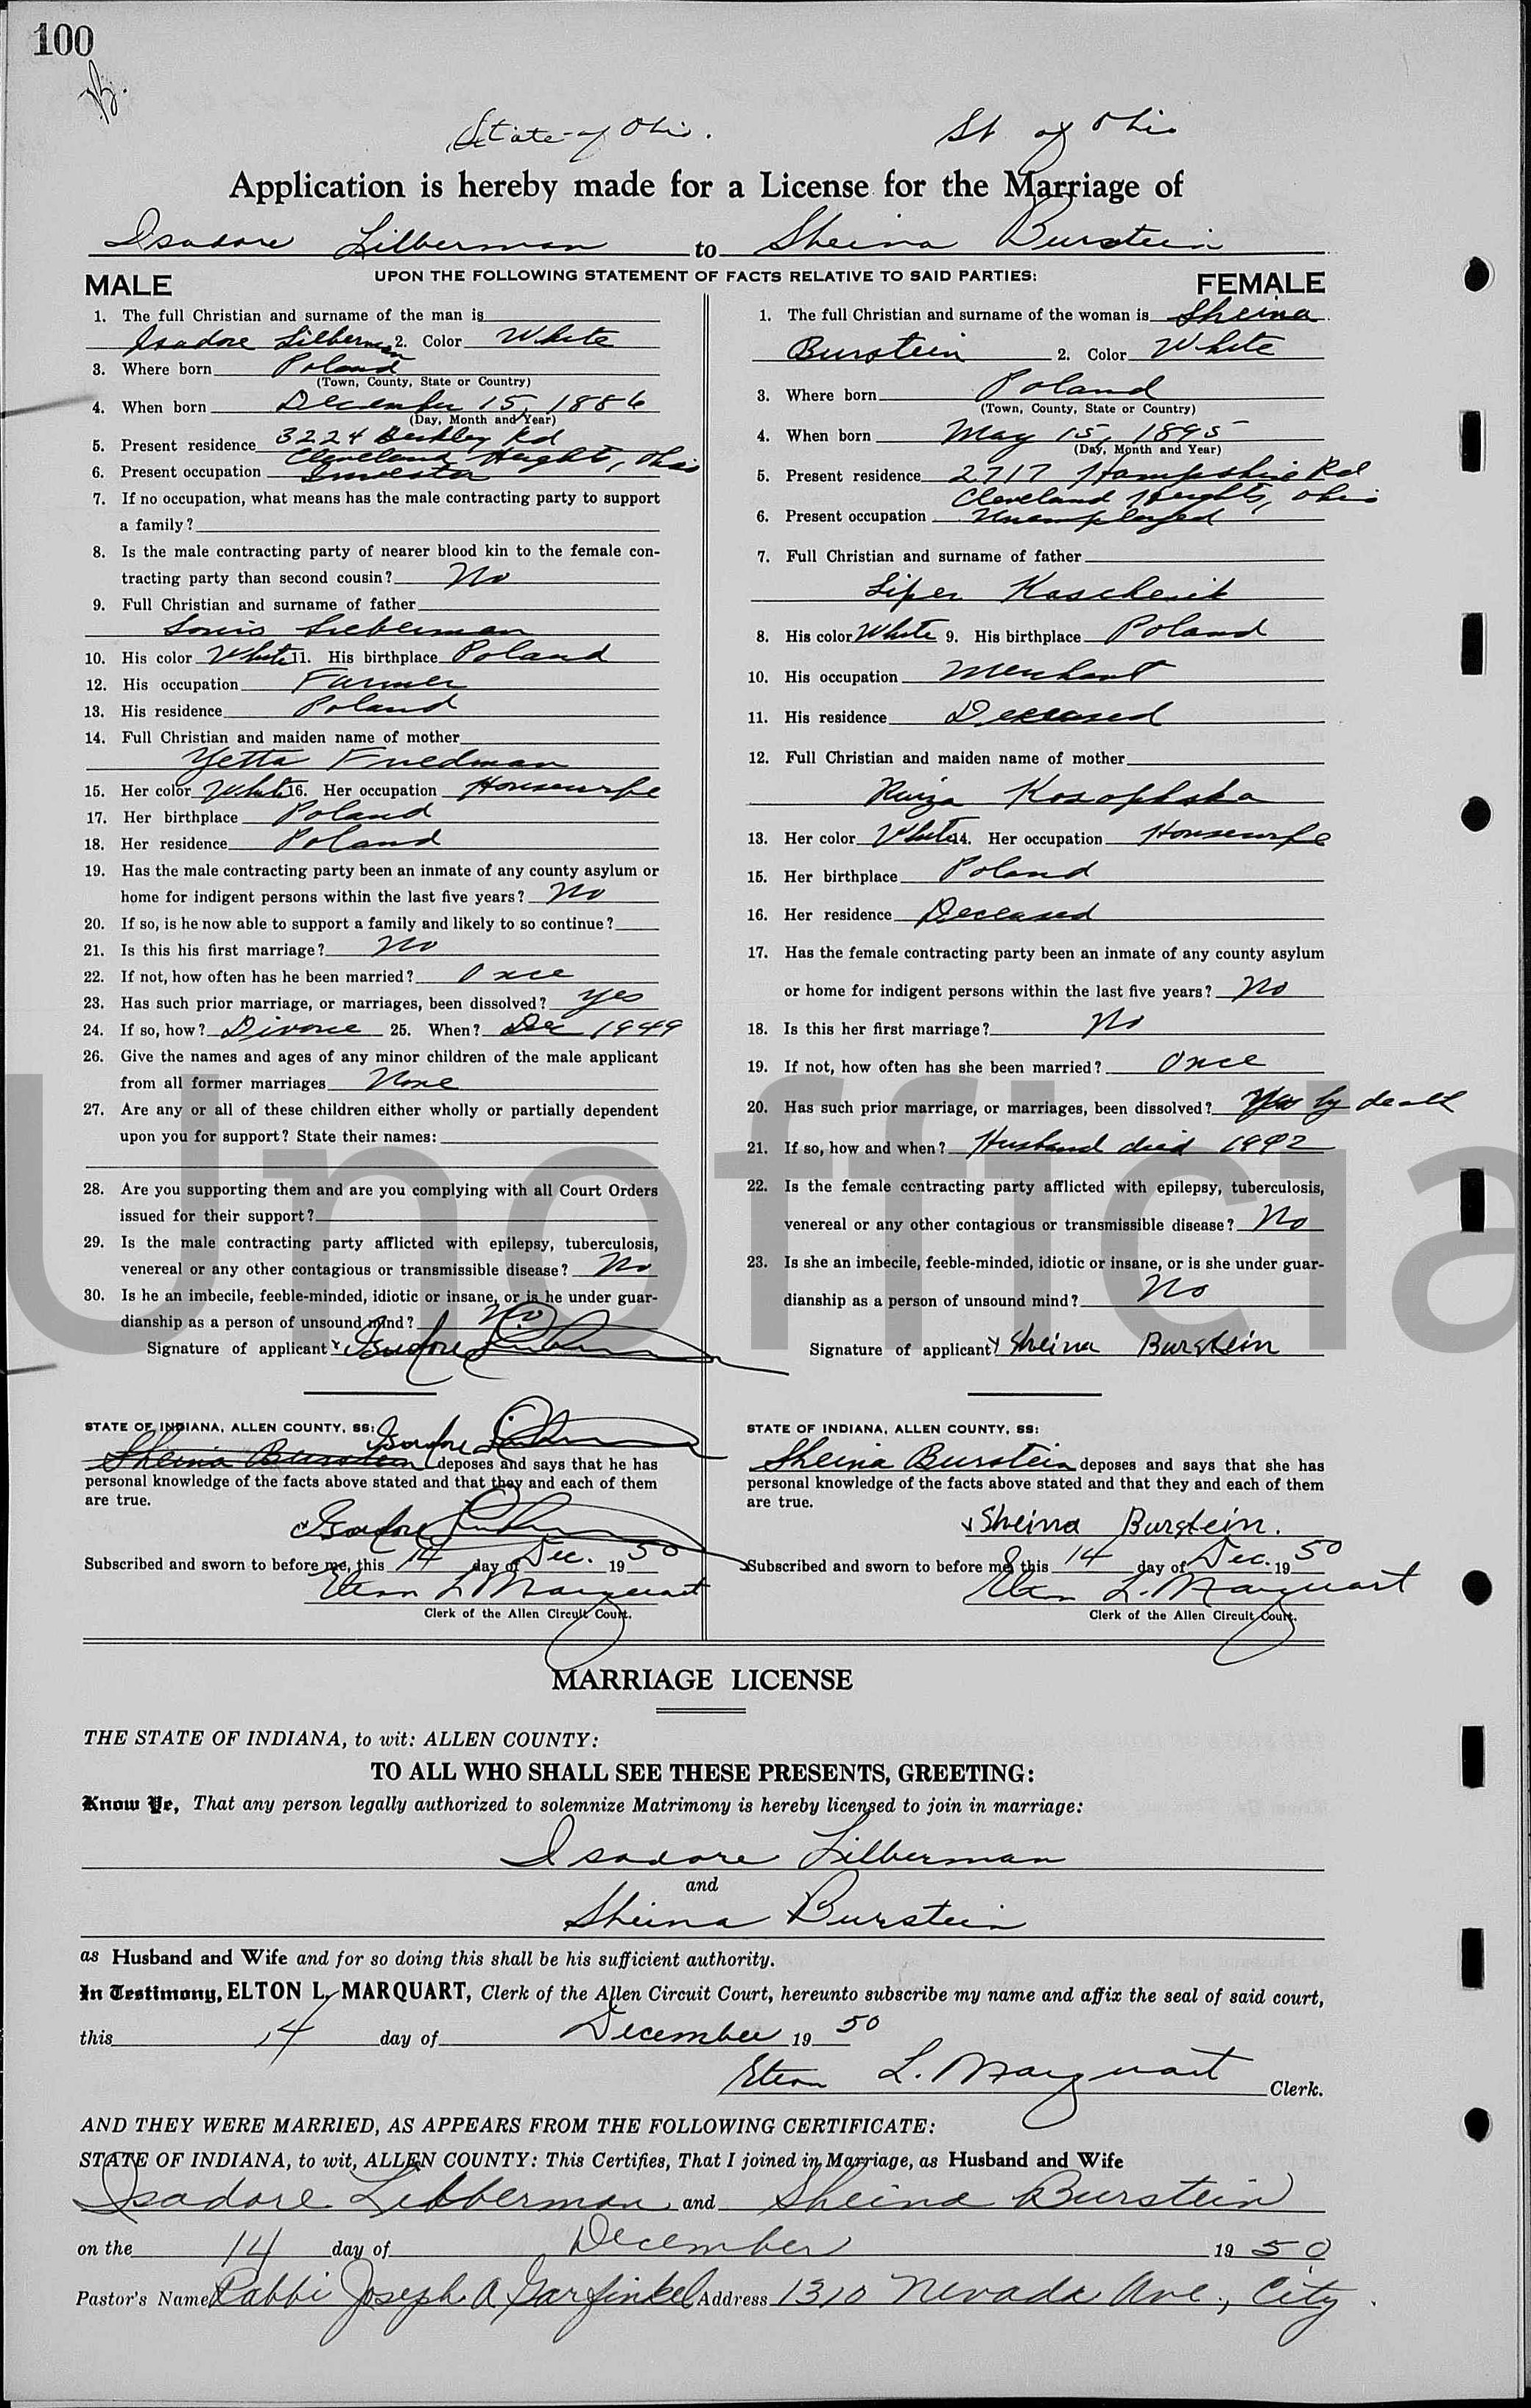 100
B.
State of Ohio. St of Ohio
Application is hereby made for a License for the Marriage of
Isadore Lilberman to Sheina Burstein
UPON THE FOLLOWING STATEMENT OF FACTS RELATIVE TO SAID PARTIES:
MALE
1. The full Christian and surname of the man is
Isadore Lilberman 2. Color White
3. Where born Poland
(Town, County, State or Country)
4. When born December 15, 1886
(Day, Month and Year)
5. Present residence 3224 Berkley Rd
Cleveland Heights, Ohio
6. Present occupation Investor
7. If no occupation, what means has the male contracting party to support
a family?
8. Is the male contracting party of nearer blood kin to the female con-
tracting party than second cousin? No
9. Full Christian and surname of father
Louis Lieberman
10. His color White 11. His birthplace Poland
12. His occupation Farmer
13. His residence Poland
14. Full Christian and maiden name of mother
Yetta Friedman
15. Her color White 16. Her occupation Housewife
17. Her birthplace Poland
18. Her residence Poland
19. Has the male contracting party been an inmate of any county asylum or
home for indigent persons within the last five years? No
20. If so, is he now able to support a family and likely to so continue?
21. Is this his first marriage? No
22. If not, how often has he been married? Once
23. Has such prior marriage, or marriages, been dissolved? Yes
24. If so, how? Divorce 25. When? Dec 1949
26. Give the names and ages of any minor children of the male applicant
from all former marriages None
27. Are any or all of these children either wholly or partially dependent
upon you for support? State their names:
28. Are you supporting them and are you complying with all Court Orders
issued for their support?
29. Is the male contracting party afflicted with epilepsy, tuberculosis,
venereal or any other contagious or transmissible disease? No
30. Is he an imbecile, feeble-minded, idiotic or insane, or is he under guar-
dianship as a person of unsound mind? No
Signature of applicant x Isadore Lieberman
STATE OF INDIANA, ALLEN COUNTY, SS: Isadore Lieberman
Sheina Burstein deposes and says that he has
personal knowledge of the facts above stated and that they and each of them
are true.
x Isadore Lieberman
Subscribed and sworn to before me, this 14 day of Dec. 1950
Elton L Marquart
Clerk of the Allen Circuit Court.
FEMALE
1. The full Christian and surname of the woman is Sheina
Burstein 2. Color White
3. Where born Poland
(Town, County, State or Country)
4. When born May 15, 1895
(Day, Month and Year)
5. Present residence 2717 Hampshire Rd
Cleveland Heights, Ohio
6. Present occupation Unemployed
7. Full Christian and surname of father
Liper
8. His color White 9. His birthplace Poland
10. His occupation Merchant
11. His residence Deceased
12. Full Christian and maiden name of mother
13. Her color White 14. Her occupation Housewife
15. Her birthplace Poland
16. Her residence Deceased
17. Has the female contracting party been an inmate of any county asylum
or home for indigent persons within the last five years? No
18. Is this her first marriage? No
19. If not, how often has she been married? Once
20. Has such prior marriage, or marriages, been dissolved? Yes by death
21. If so, how and when? Husband died 1942
22. Is the female contracting party afflicted with epilepsy, tuberculosis,
venereal or any other contagious or transmissible disease? No
23. Is she an imbecile, feeble-minded, idiotic or insane, or is she under guar-
dianship as a person of unsound mind? No
Signature of applicant x Sheina Burstein
STATE OF INDIANA, ALLEN COUNTY, SS:
Sheina Burstein deposes and says that she has
personal knowledge of the facts above stated and that they and each of them
are true.
x Sheina Burstein.
Subscribed and sworn to before me, this 14 day of Dec. 1950
Elton L. Marquart
Clerk of the Allen Circuit Court.
Unofficia
MARRIAGE LICENSE
THE STATE OF INDIANA, to wit: ALLEN COUNTY:
TO ALL WHO SHALL SEE THESE PRESENTS, GREETING:
Know Ye, That any person legally authorized to solemnize Matrimony is hereby licensed to join in marriage:
Isadore Lilberman
and
Sheina Burstein
as Husband and Wife and for so doing this shall be his sufficient authority.
In Testimony, ELTON L. MARQUART, Clerk of the Allen Circuit Court, hereunto subscribe my name and affix the seal of said court,
this 14 day of December 1950
Elton L. Marquart Clerk.
AND THEY WERE MARRIED, AS APPEARS FROM THE FOLLOWING CERTIFICATE:
STATE OF INDIANA, to wit, ALLEN COUNTY: This Certifies, That I joined in Marriage, as Husband and Wife
Isadore Libberman and Sheina Burstein
on the 14 day of December 1950
Pastor's Name Rabbi Joseph A Garfinkel Address 1310 Nevada Ave., City